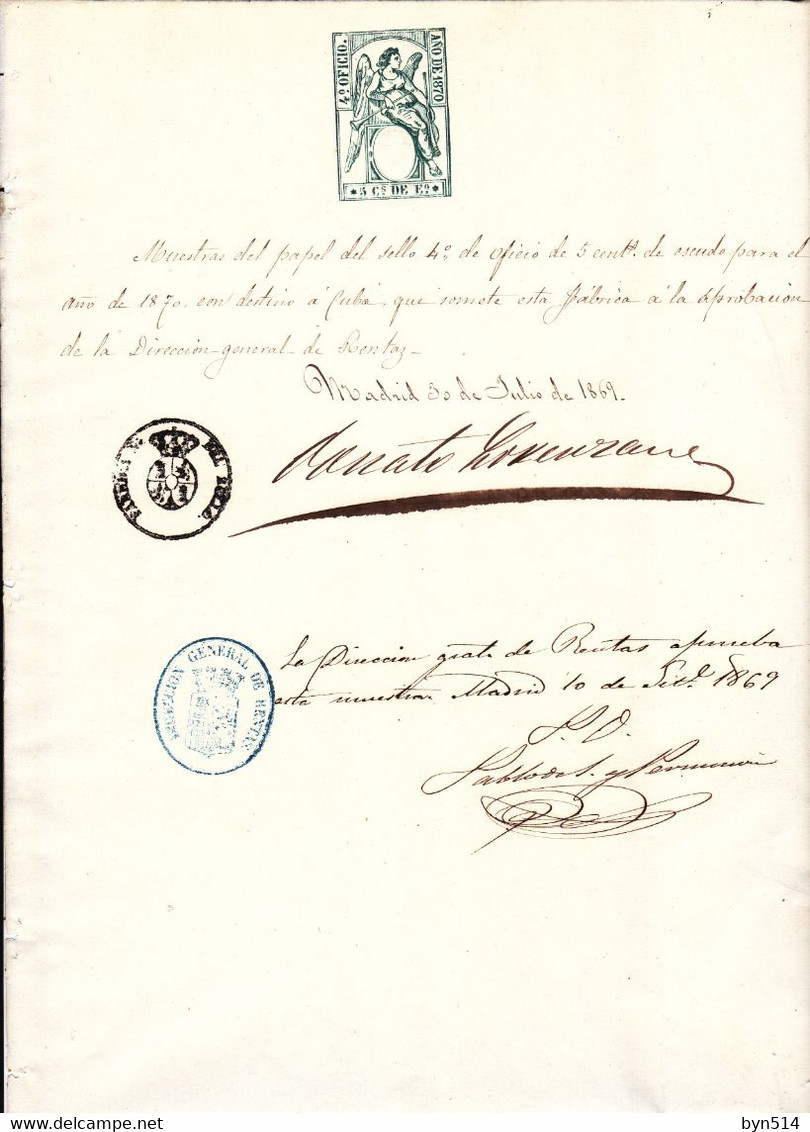 4º OFICIO.
AÑO DE 1870
* 5 Cs DE Eo *
Muestras del papel del sello 4º de oficio de 5 cents. de escudo para el
año de 1870, con destino á Cuba, que somete esta Fábrica á la aprobacion
de la Direccion general de Rentas.
Madrid 30 de Julio de 1869.
DEL SELLO.
DIRECCION GENERAL DE RENTAS
La Direccion gral. de Rentas aprueba
esta muestra. Madrid 10 de Set.e 1869
P. O.
byn514